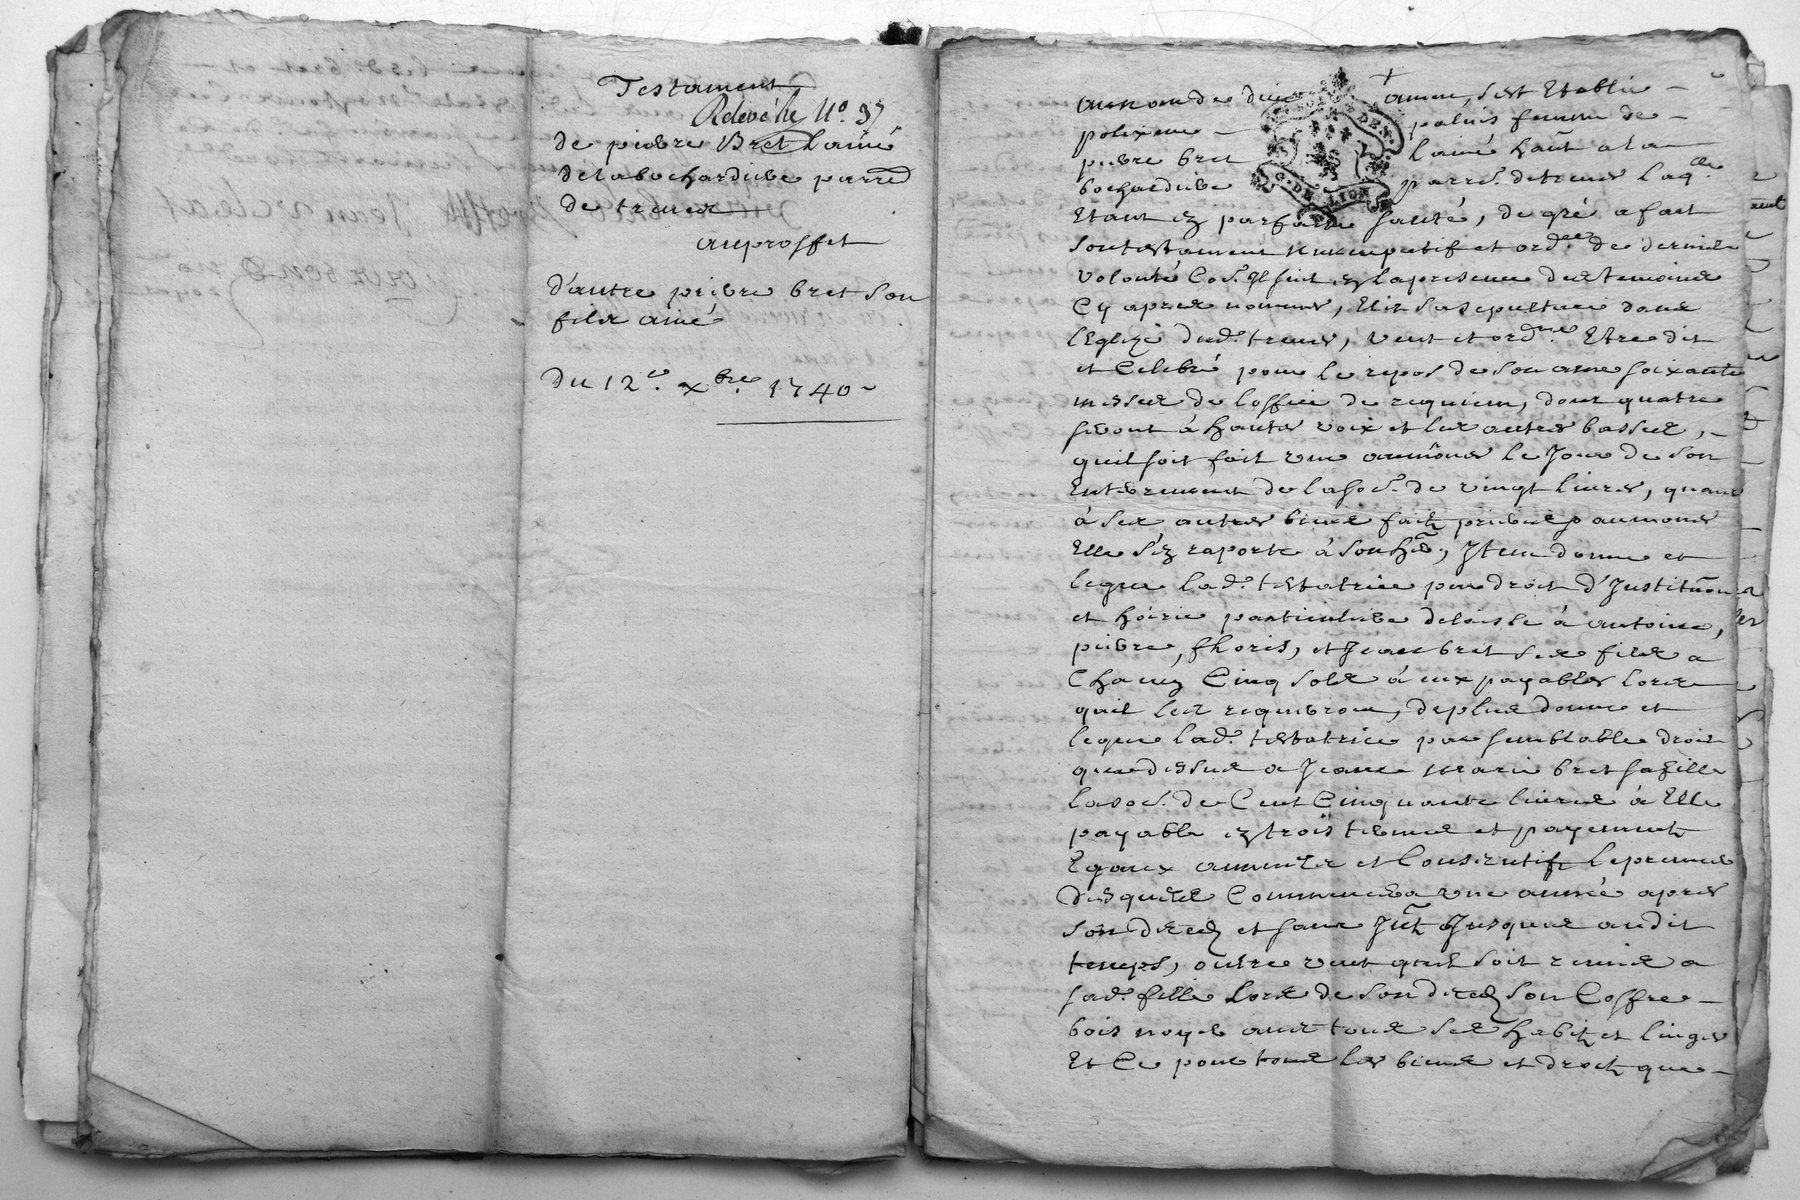 Testament
Relevé N.o 97
de pierre Bret L'ainé
de labochardiere parred
de treves
au proffit
d'autre pierre bret son
fils ainé
Du 12.e xbre. 1740
au nom de dieu amen, s'est Etablie
polixene palais femme de
pierre bret L'ainé hañt a la
bochardiere parr.e de treves Laq.lle
Etant ez parfaite santé, de gré a fait
son testament nuncupatif et ord.ce de derniere
volonté Co.e s'Ensuit ez la presence des temoins
Cy apres nommes, Elit sa sepulture dans
l'Eglize dud.t treves, veut et ord.ne Etre dit
et Celebré pour le repos de son ame soixante
messes de l'office de requiem, dont quatre
seront à hautes voix et les autres basses,
quil soit fait une aumône le Jour de son
Enterrement de la so.e de vingt livres, quant
à ses autres biens faitz prieres aumones
Elle s'ez raporte à son her, Item donne et
legue lad.e testatrice par droit d'Institũon
et hoirie particuliere delaissé à antoine,
pierre, fhoris, et Jean bret ses fils a
Chacuz Cinq sols à eux payables lors
quil les requerront, deplus donne et
legue lad.e testatrice par semblable droit
que dessus a Jeane marie bret sa fille
la so.e de Cent Cinquante livres à Elle
payable ez trois termes et payements
Egaux annuels et Consecutifs le premier
desquels Commencera une année apres
son decez et sans Jñt Jusques audit
temps, outre veut quil soit remis a
sad.e fille lors de son decez son Coffre
bois noyer avec tous ses habitz et linges
Et Ce pour tous les biens et droitz que